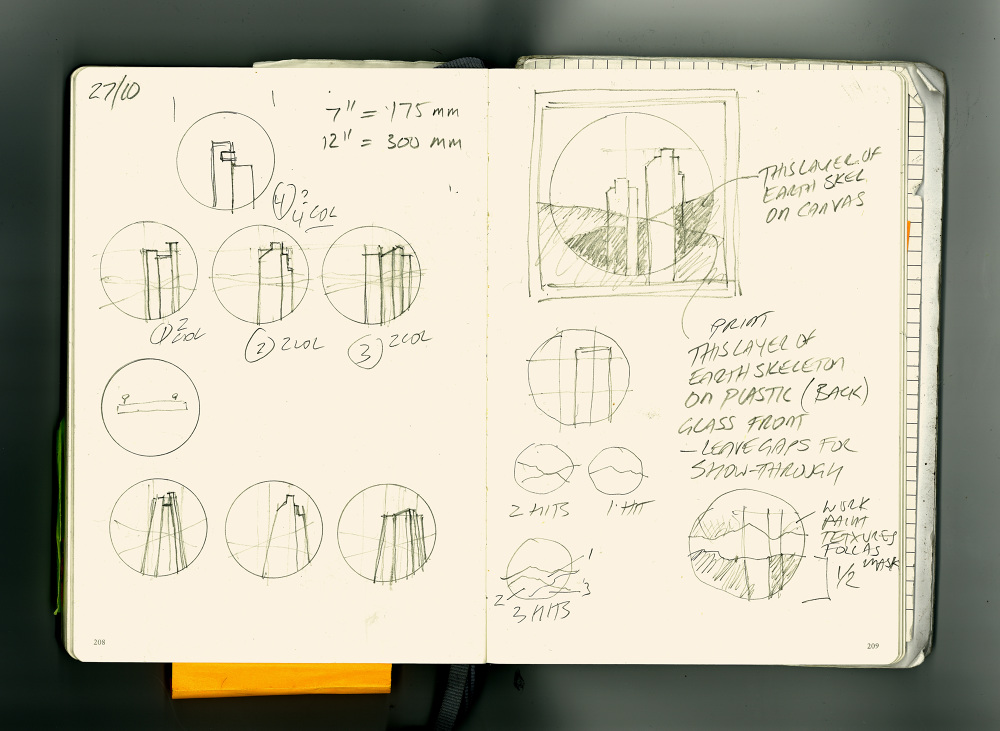 27/10
7" = 175 mm
12" = 300 mm
4 ?
4 COL
1 2 COL
2 2 COL
3 2 COL
9 9
208
THIS LAYER OF
EARTH SKEL
ON CANVAS
PRINT
THIS LAYER OF
EARTH SKELETON
ON PLASTIC (BACK)
GLASS FRONT
– LEAVE GAPS FOR
SHOW-THROUGH
2 HITS
1 HIT
WORK
PAINT
TETXURES
FOLL AS
MASK
1/2
1
2
3
3 HITS
209